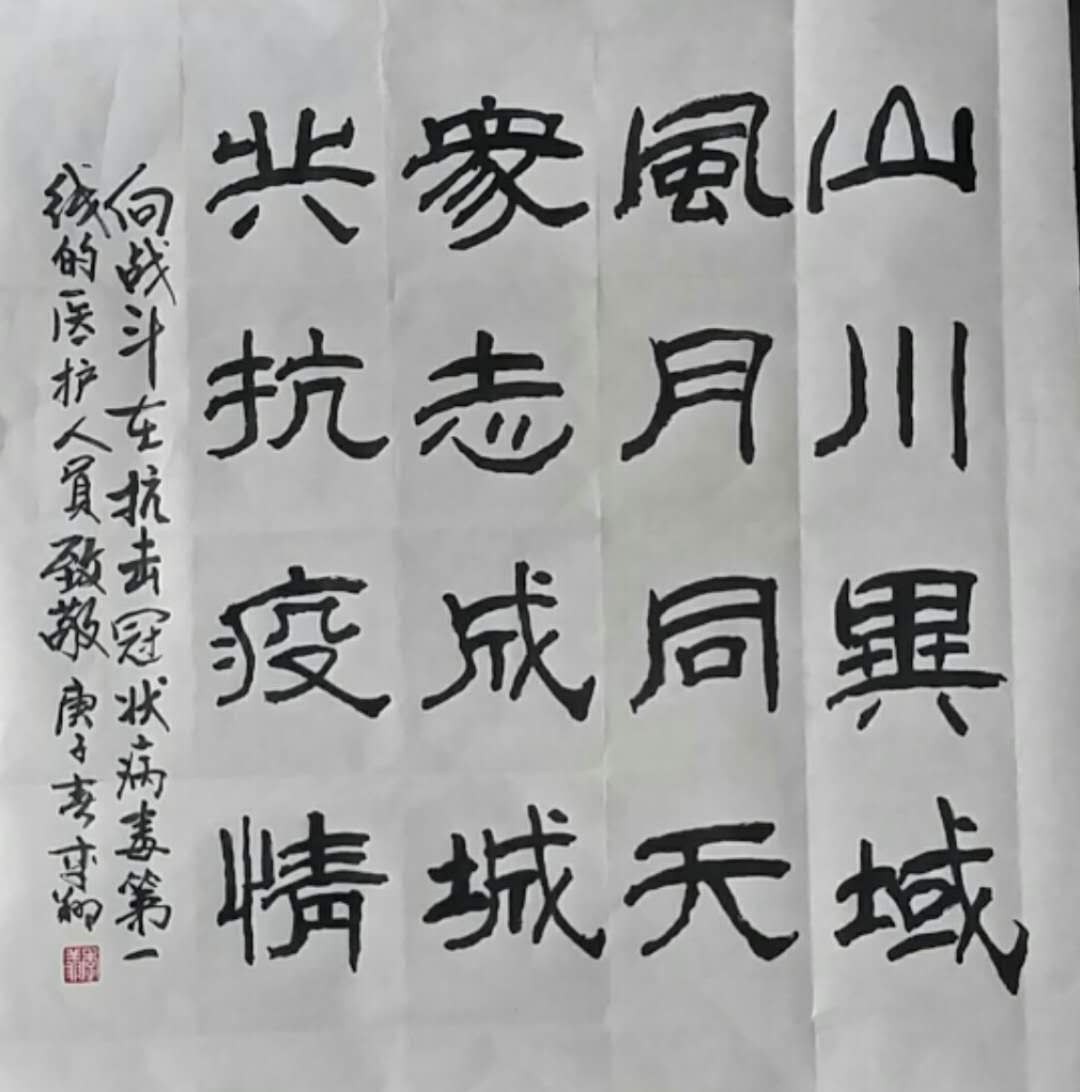 山川異域
風月同天
衆志成城
共抗疫情
向战斗在抗击冠状病毒第一
线的医护人員致敬 庚子春